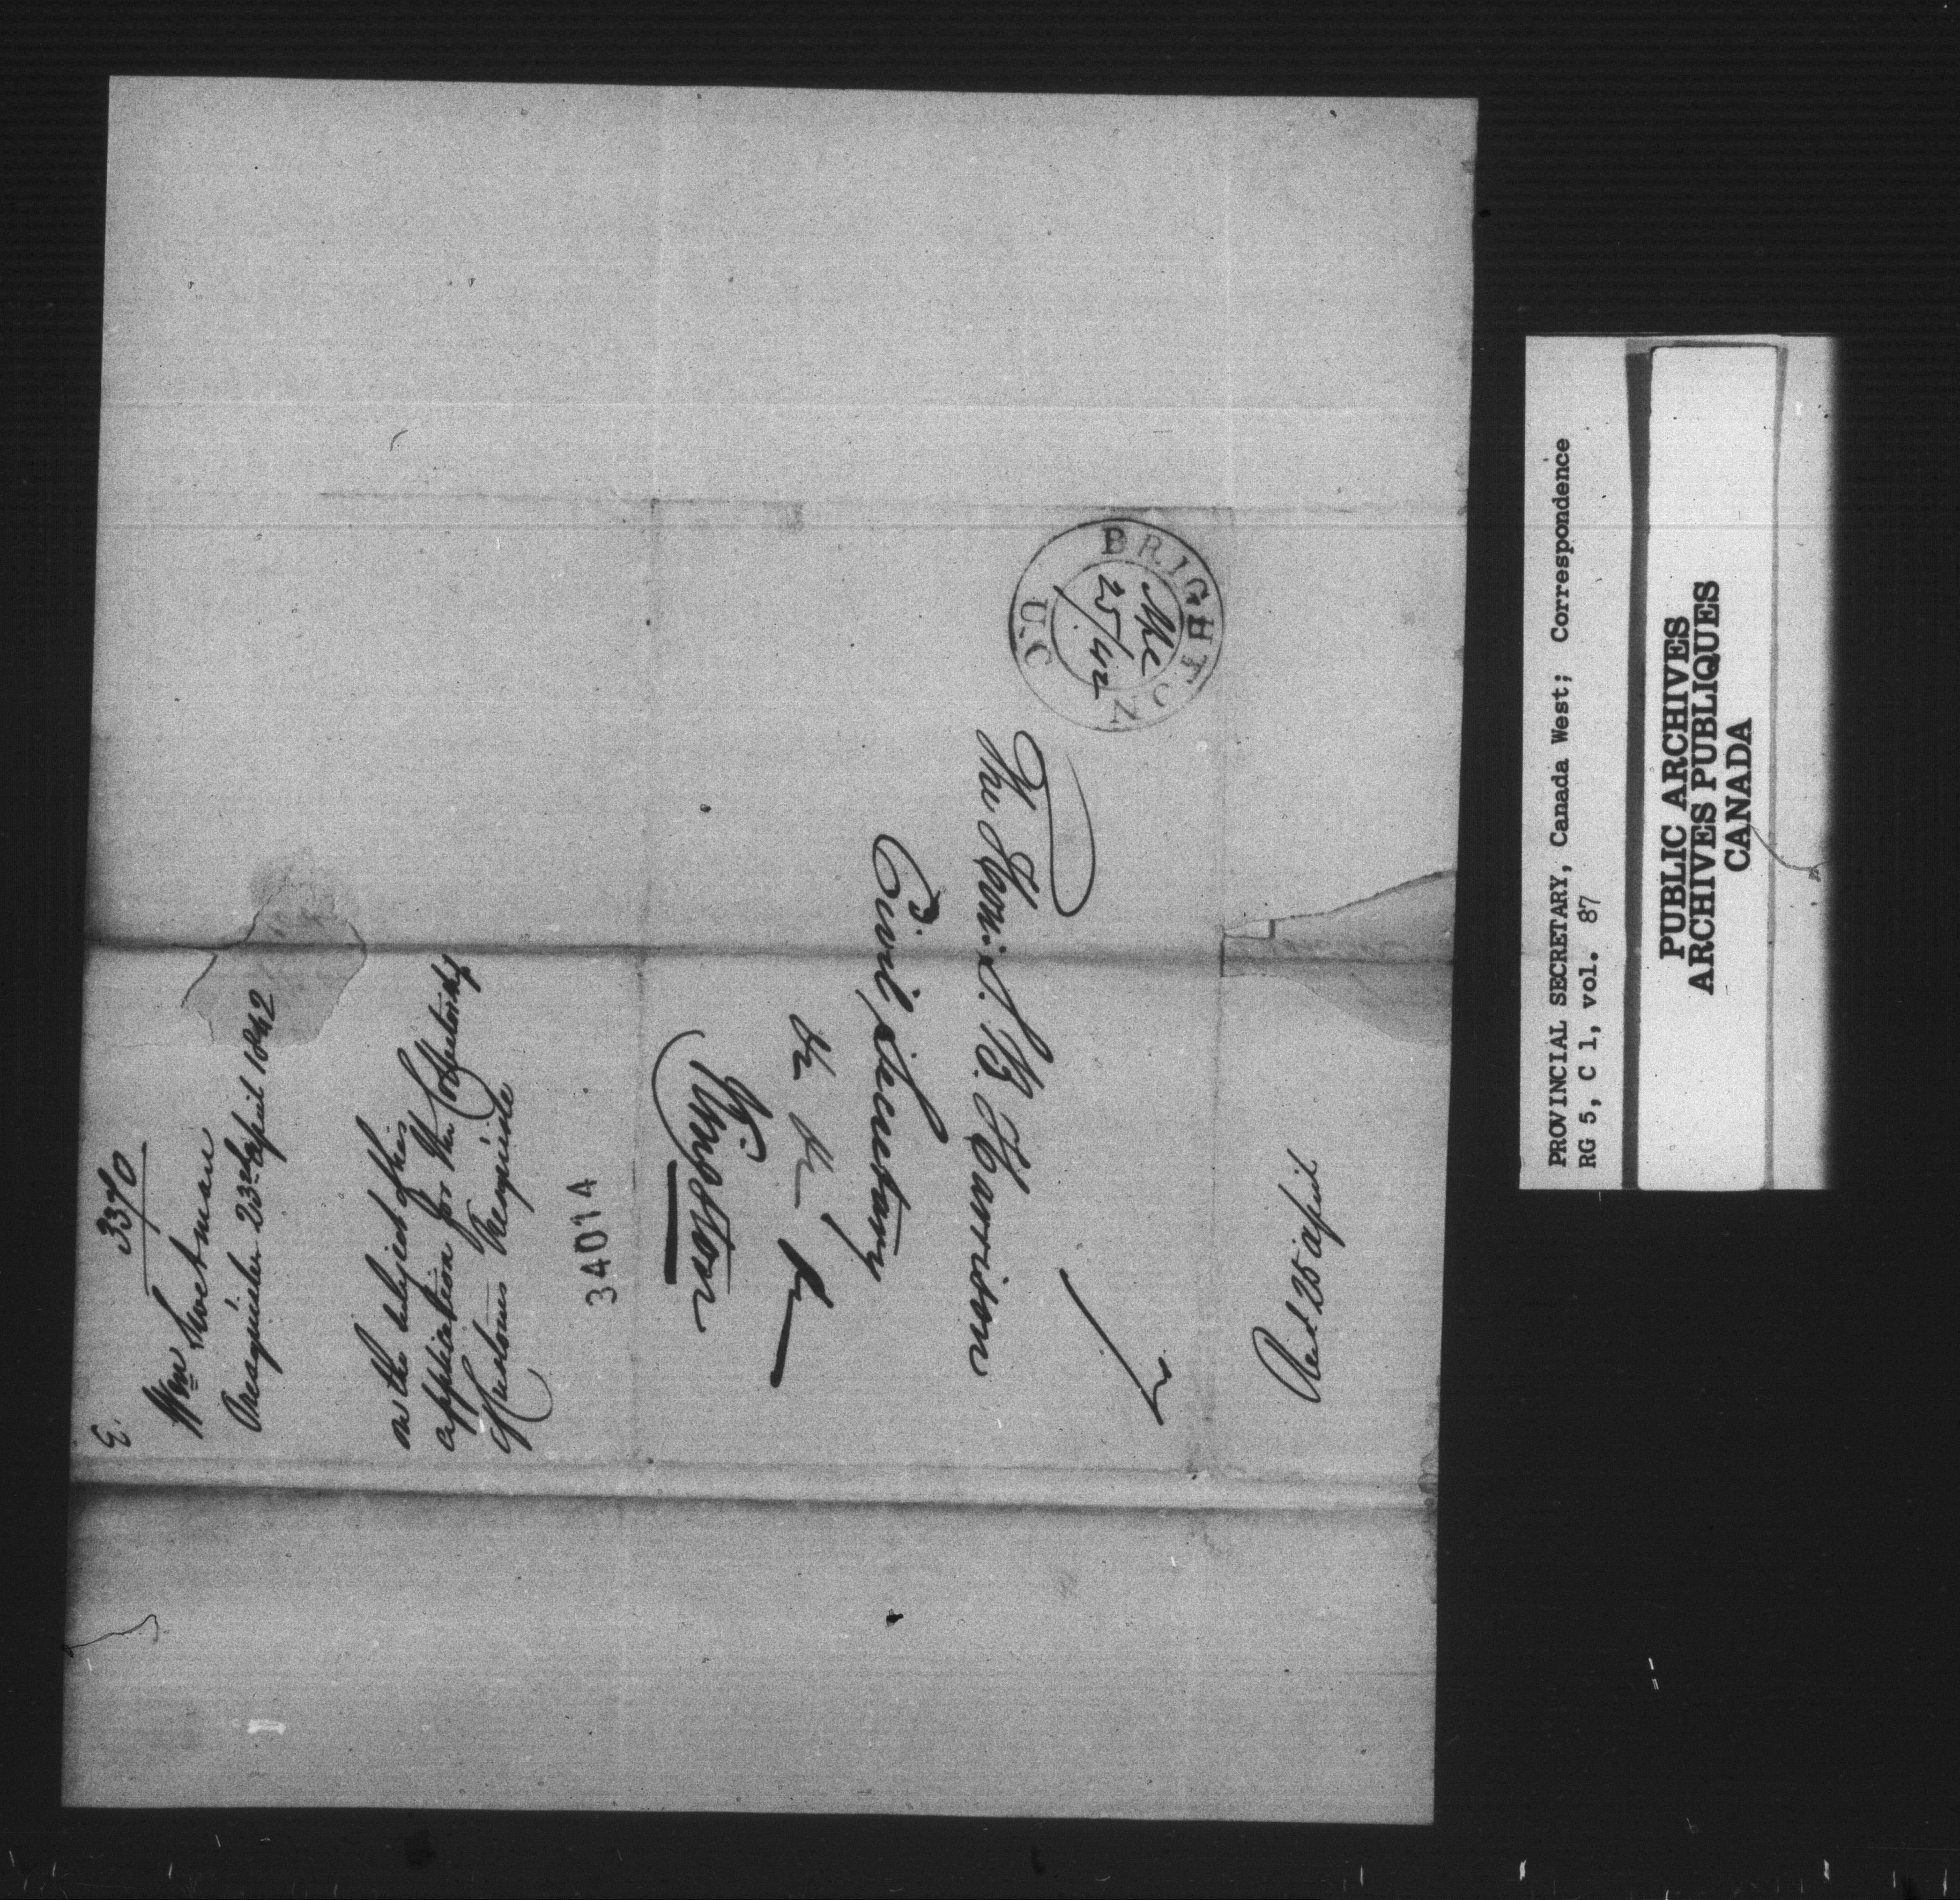 E. 3370
Wm Swetman
Presqu'isle 23rd April 1842
on the subject of his
application for the Collectorship
of Customs Presquisle
34014
BRIGHTON
U.C
25/42
The Honble S. B. Harrison
Civil Secretary
&c &c &c
Kingston
Recd 25 april
PROVINCIAL SECRETARY, Canada West; Correspondence
RG 5, C 1, vol. 87
PUBLIC ARCHIVES
ARCHIVES PUBLIQUES
CANADA